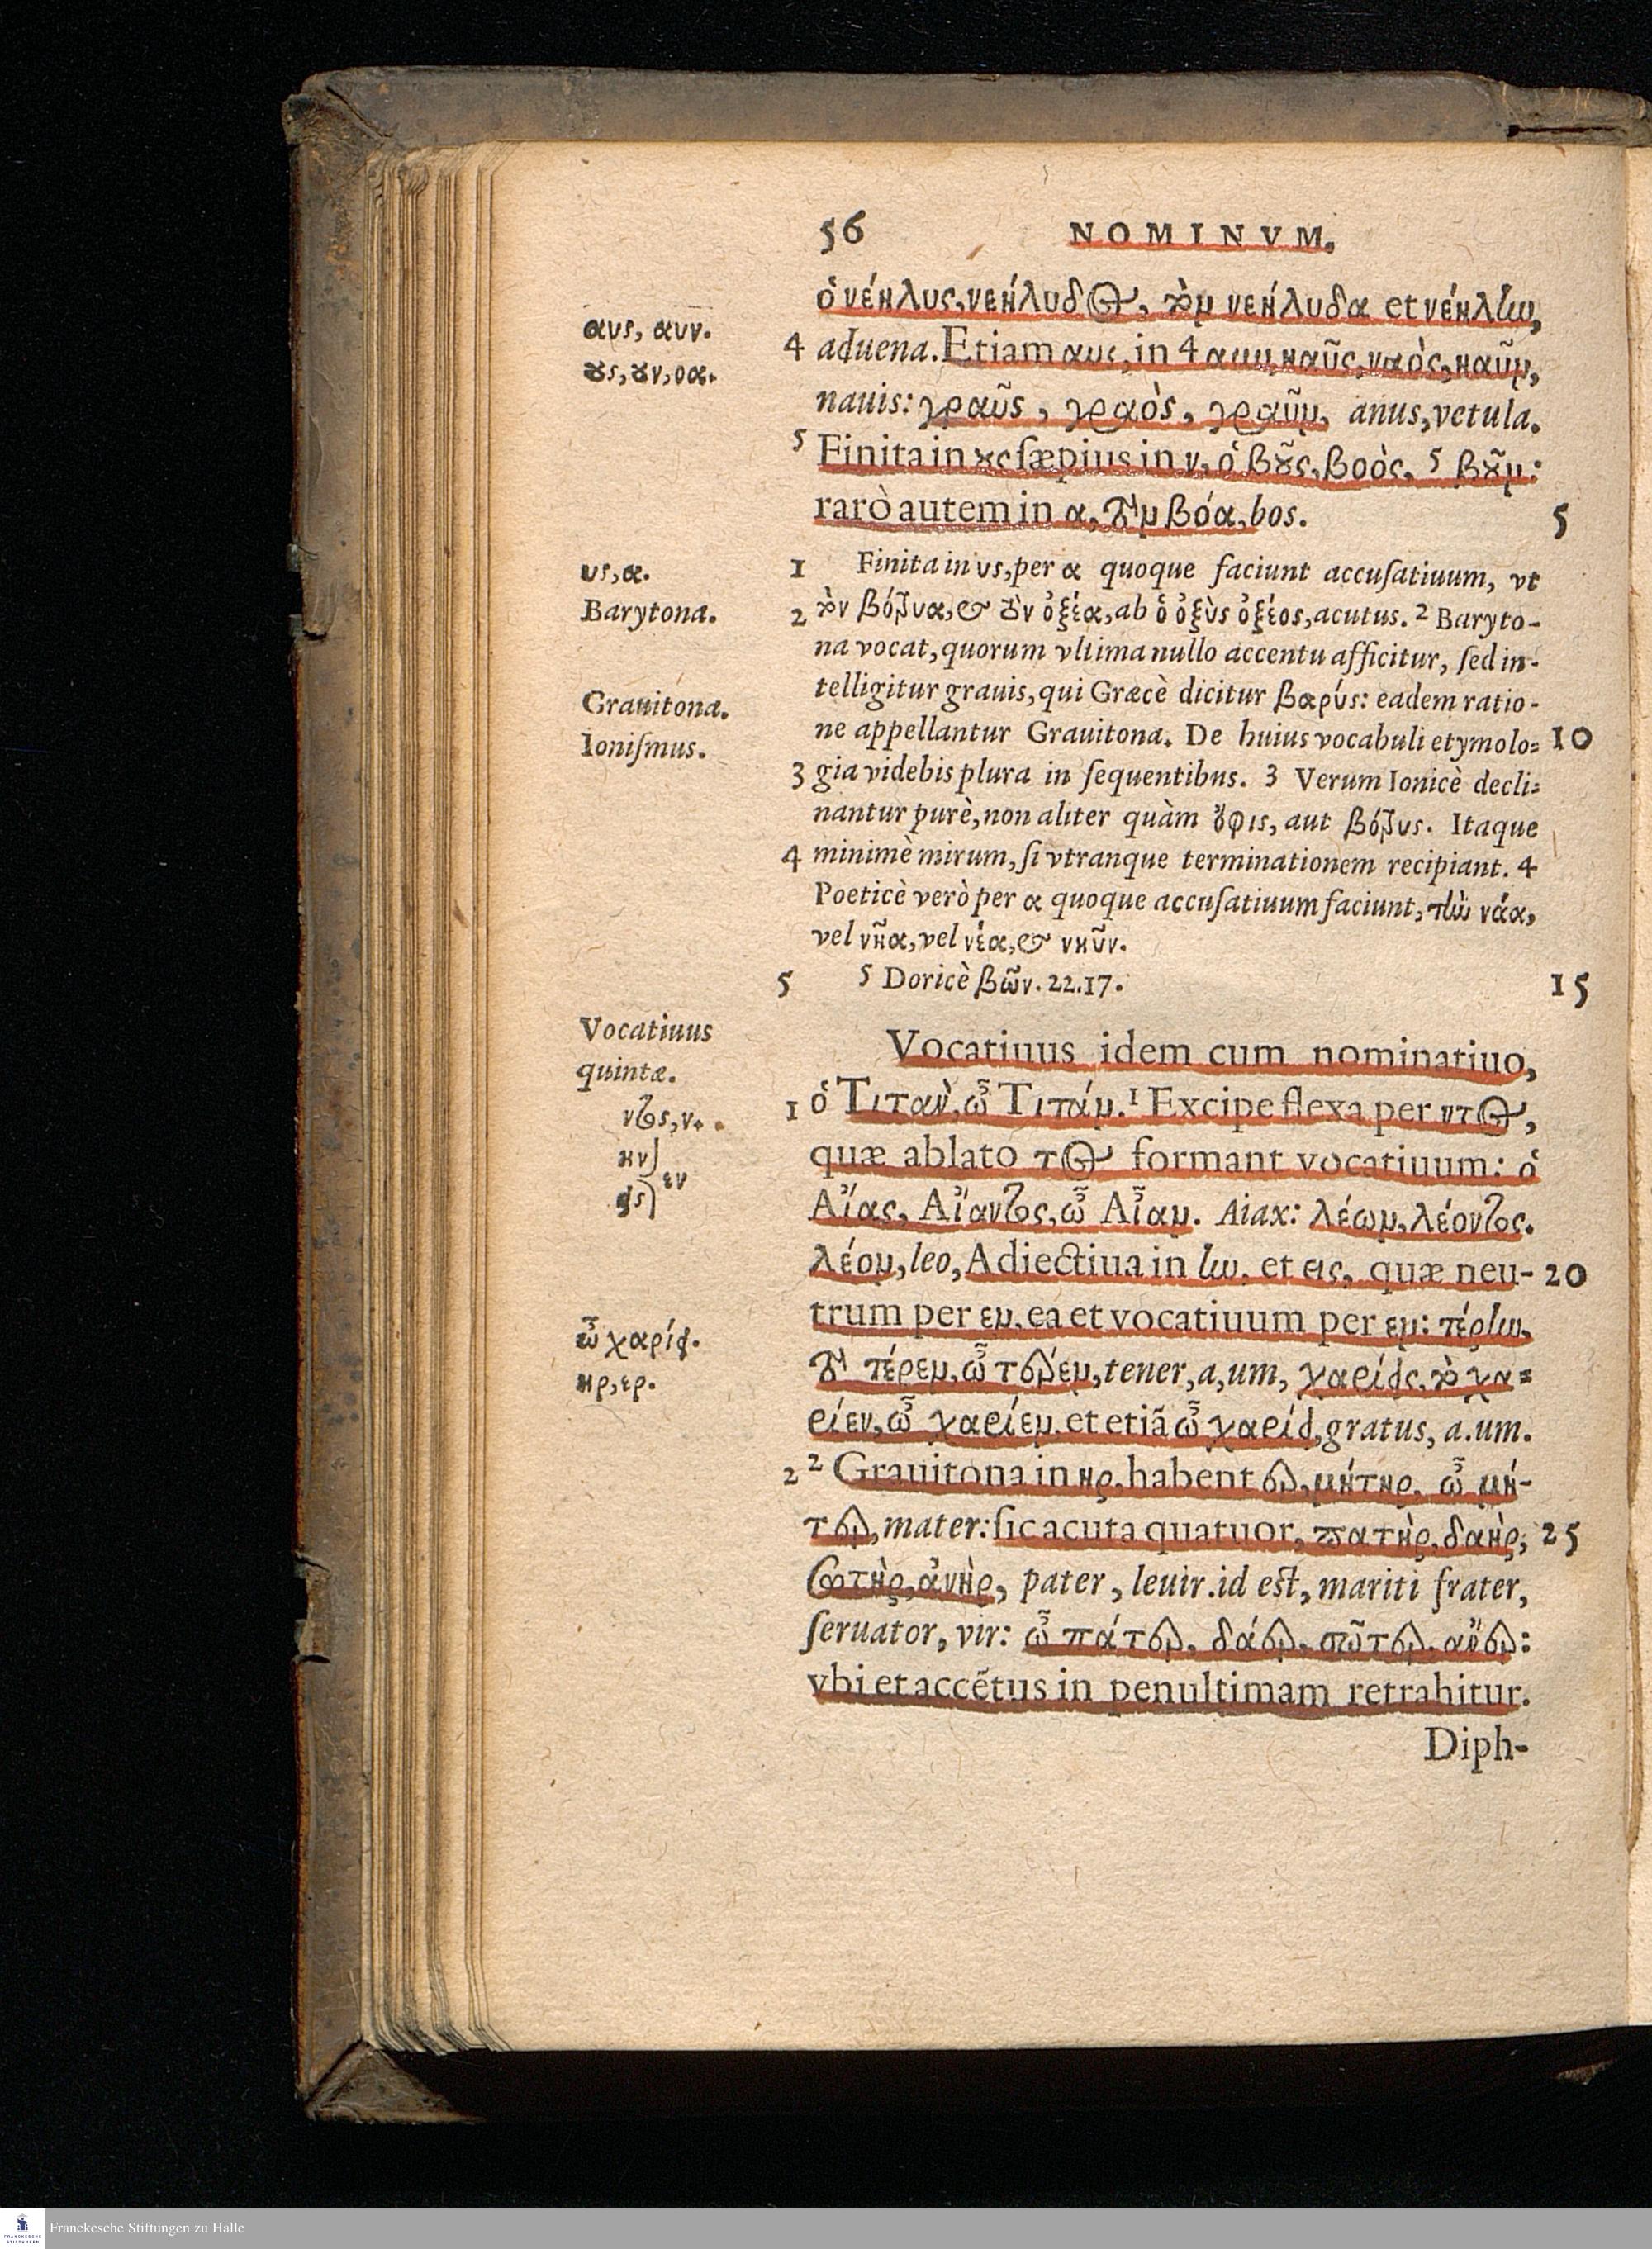 56 NOMINVM.
ὁ νέηλυς, νεήλυδος, τὸν νεήλυδα et νέηλυν,
αυς, αυν.
4 aduena. Etiam αυς, in 4 αυν, ναῦς, ναὸς, ναῦν,
ους, ουν, οα.
nauis: γραῦς, γραὸς, γραῦν, anus, vetula.
5 Finita in ους sæpius in ν, ὁ βοῦς, βοὸς, 5 βοῦν:
rarò autem in α, τὸν βόα, bos. 5
υς, α.
1 Finita in υς, per α quoque faciunt accuſatiuum, vt
Barytona.
2 τὸν βότρυα, & τὸν ὀξέα, ab ὁ ὀξὺς ὀξέος, acutus. 2 Baryto-
na vocat, quorum vltima nullo accentu afficitur, ſed in-
telligitur grauis, qui Græcè dicitur βαρύς: eadem ratio-
Grauitona.
ne appellantur Grauitona. De huius vocabuli etymolo= 10
Ioniſmus.
3 gia videbis plura in ſequentibus. 3 Verum Ionicè decli=
nantur purè, non aliter quàm ὄφις, aut βότρυς. Itaque
4 minimè mirum, ſi vtranque terminationem recipiant. 4
Poeticè verò per α quoque accuſatiuum faciunt, τὴν νάα,
vel νῆα, vel νέα, & νηῦν.
5 5 Doricè βῶν. 22.17. 15
Vocatiuus
quintæ.
Vocatiuus idem cum nominatiuo,
ντος, ν.
1 ὁ Τιτὰν, ὦ Τιτάν. 1 Excipe flexa per ντος,
ην
εις) εν
quæ ablato τος formant vocatiuum: ὁ
Αἴας, Αἴαντος, ὦ Αἶαν. Aiax: λέων, λέοντος.
λέον, leo, Adiectiua in ην. et εις, quæ neu- 20
trum per εν, ea et vocatiuum per εν: τέρην,
ὦ χαρίει.
τὸ τέρεν, ὦ τέρεν, tener, a, um, χαρίεις, τὸ χα=
ηρ, ερ.
ρίεν, ὦ χαρίεν, et etiã ὦ χαρίει, gratus, a. um.
2 2 Grauitona in ηρ, habent ερ, μήτηρ, ὦ μῆ-
τερ, mater: ſic acuta quatuor, πατὴρ, δαὴρ, 25
σωτὴρ, ἀνὴρ, pater, leuir. id eſt, mariti frater,
ſeruator, vir: ὦ πάτερ, δάερ, σῶτερ, ἄνερ:
vbi et accẽtus in penultimam retrahitur.
Diph-
Franckesche Stiftungen zu Halle